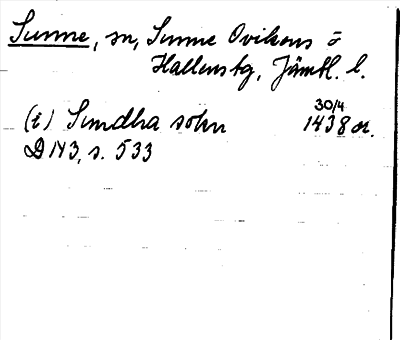 Sunne, sn, Sunne Ovikens o
Hallens tg, Jämtl. l.
30/4
(i) Sundha sokn 1438 or.
D 143, s. 533